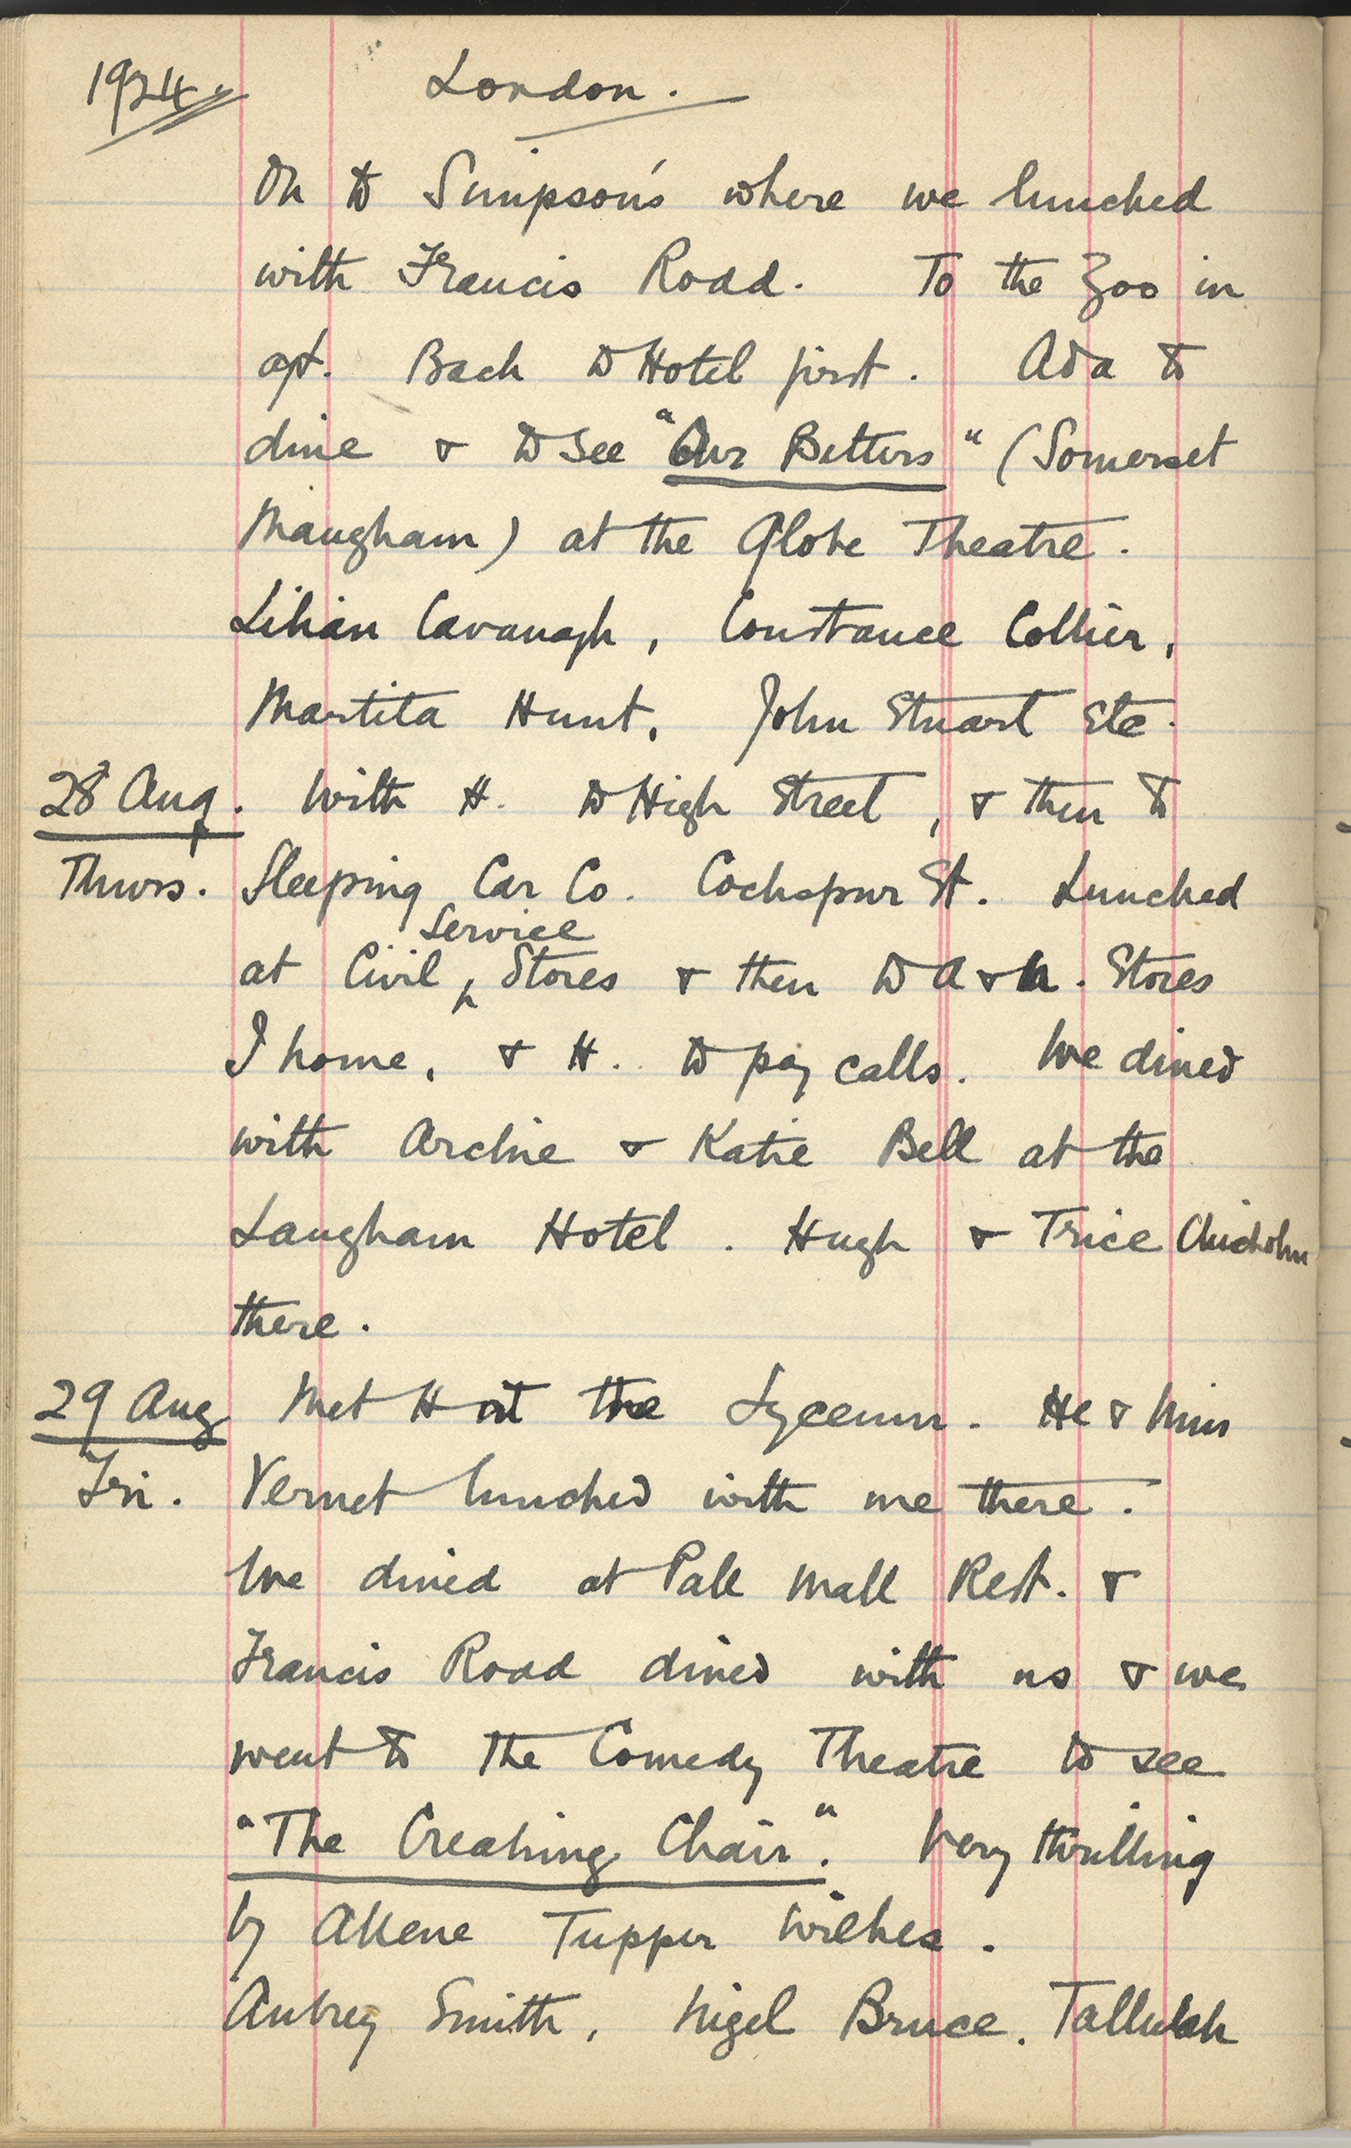 1924. London.
On to Simpson's where we lunched
with Francis Rodd. To the Zoo in
aft. Back to Hotel first. Ada to
dine & to see "Our Betters" (Somerset
Maugham) at the Globe Theatre.
Lilian Cavanagh, Constance Collier,
Martita Hunt, John Stuart etc.
28 Aug. With H. to High Street, & then to
Thurs. Sleeping Car Co. Cockspur St. Lunched
at Civil Service Stores & then to A & N. Stores
I home, & H. to pay calls. We dined
with Archie & Katie Bell at the
Langham Hotel. Hugh & Trice Chisholm
there.
29 Aug Met H at the Lyceum. He & Miss
Fri. Vernet lunched with me there.
We dined at Pall Mall Rest. &
Francis Rodd dined with us & we
went to the Comedy Theatre to see
"The Creaking Chair". Very thrilling
by Allene Tupper Wilkes.
Aubrey Smith, Nigel Bruce. Tallulah